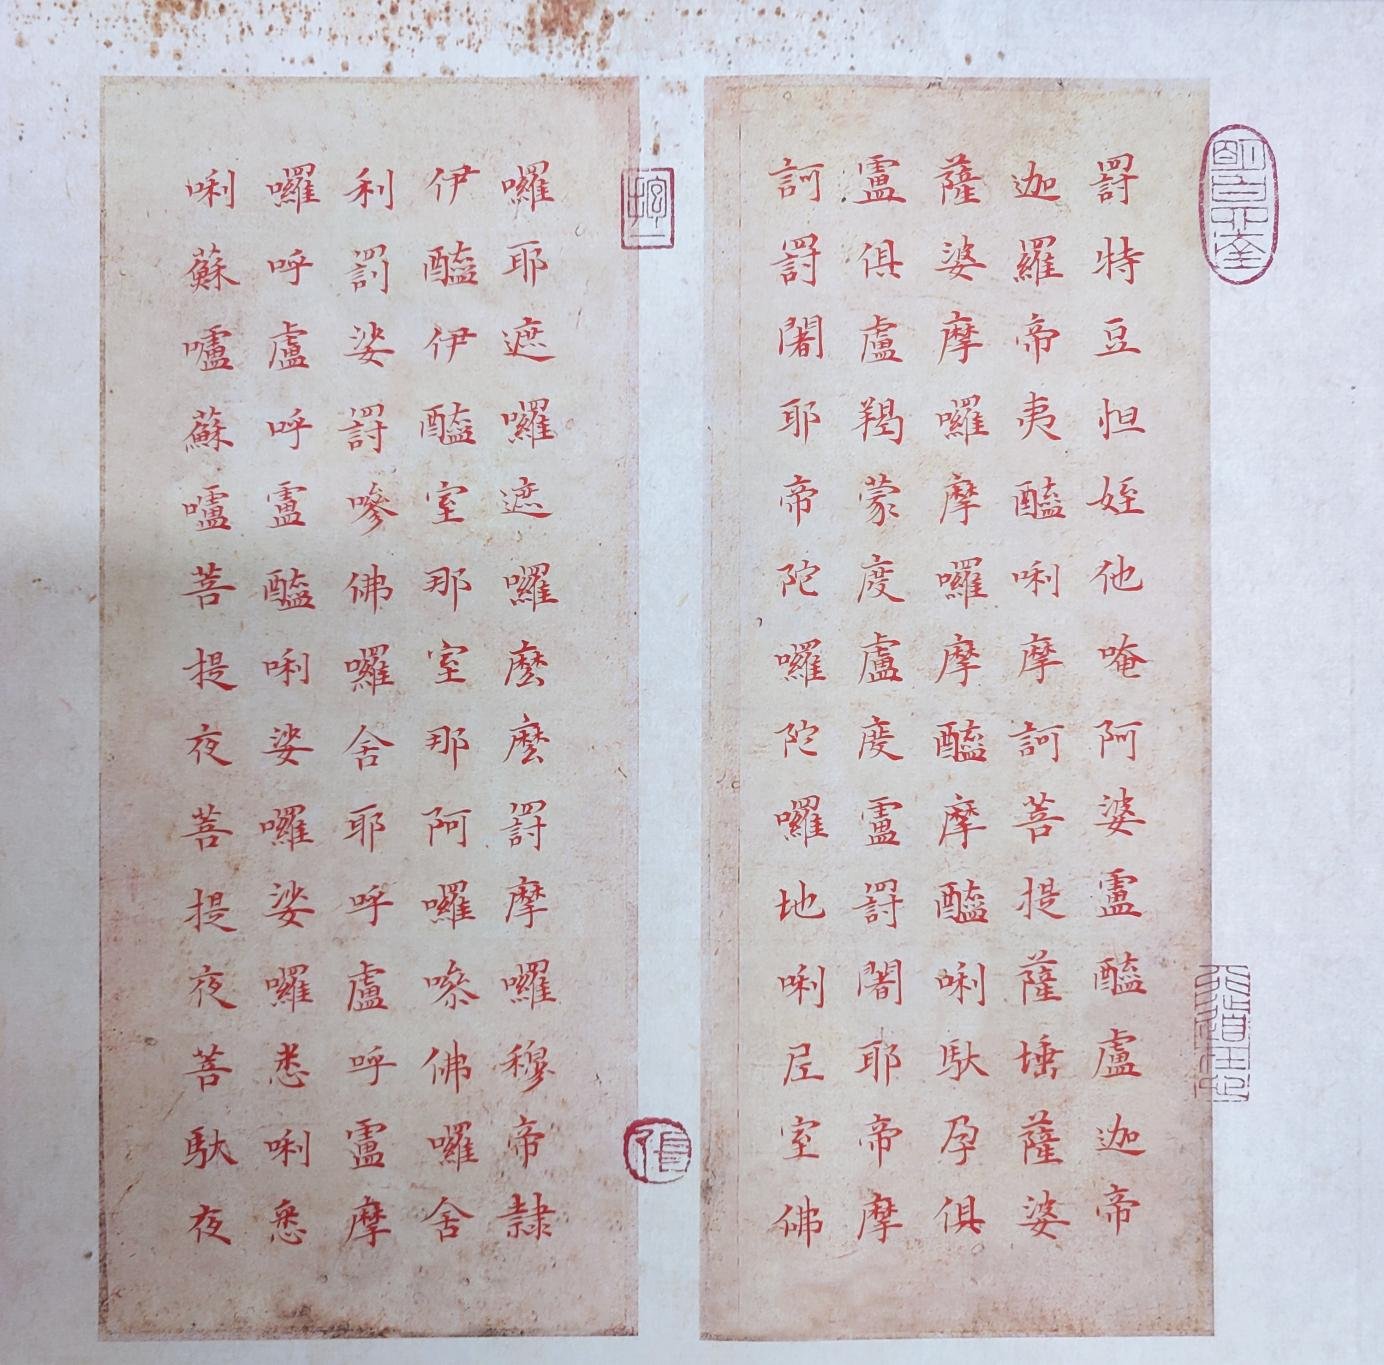 罸特豆怛姪他唵阿婆盧醯盧迦帝
迦羅帝夷醯唎摩訶菩提薩埵薩婆
薩婆摩囉摩囉摩醯摩醯唎馱孕俱
盧俱盧羯蒙度盧度盧罸闍耶帝摩
訶罸闍耶帝陀囉陀囉地唎尼室佛
囉耶遮囉遮囉麼麼罸摩囉穆帝隷
伊醯伊醯室那室那阿囉嘇佛囉舍
利罰娑罸嘇佛囉舍耶呼盧呼盧摩
囉呼盧呼盧醯唎娑囉娑囉悉唎悉
唎蘇嚧蘇嚧菩提夜菩提夜菩馱夜